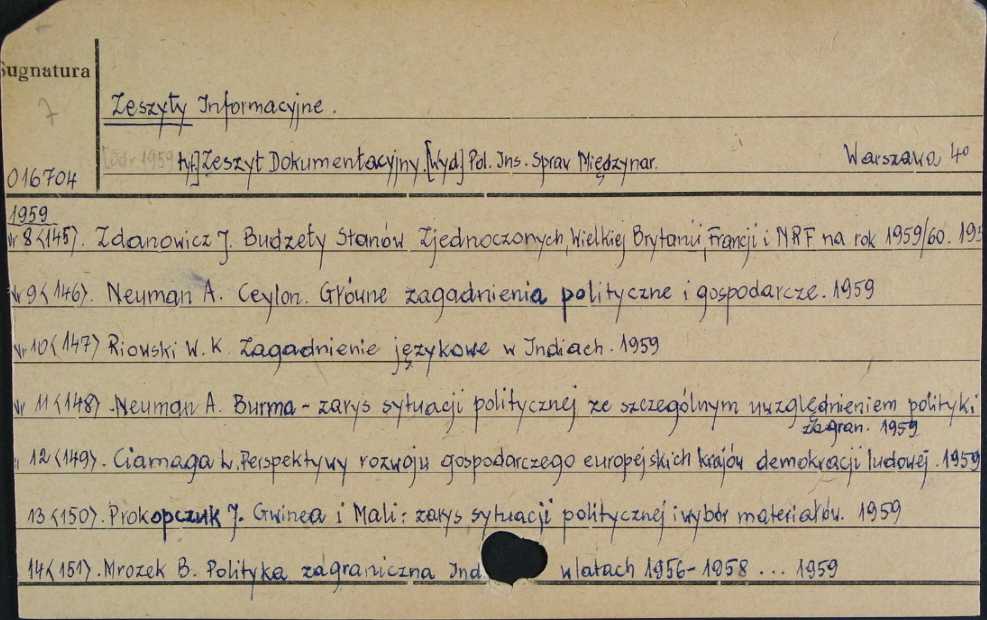 Sugnatura
7
Zeszyty Informacyjne.
[od r 1959 tyt] Zeszyt Dokumentacyjny. [Wyd] Pol. Ins. Spraw Międzynar. Warszawa 4º
016704
1959
Nr 8<145>. Zdanowicz J. Budżety Stanów Zjednoczonych, Wielkiej Brytanii, Francji i NRF na rok 1959/60. 195
Nr 9<146>. Neuman A. Ceylon. Główne zagadnienia polityczne i gospodarcze. 1959
Nr 10<147> Riowski W. K. Zagadnienie językowe w Indiach. 1959
Nr 11<148> Neuman A. Burma - zarys sytuacji politycznej ze szczególnym uwzględnieniem polityki
zagran. 1959
12<149>. Ciamaga L. Perspektywy rozwoju gospodarczego europejskich krajów demokracji ludowej. 1959
13<150>. Prokopczuk J. Gwinea i Mali: zarys sytuacji politycznej i wybór materiałów. 1959
14<151>. Mrozek B. Polityka zagraniczna Ind w latach 1956-1958 ... 1959